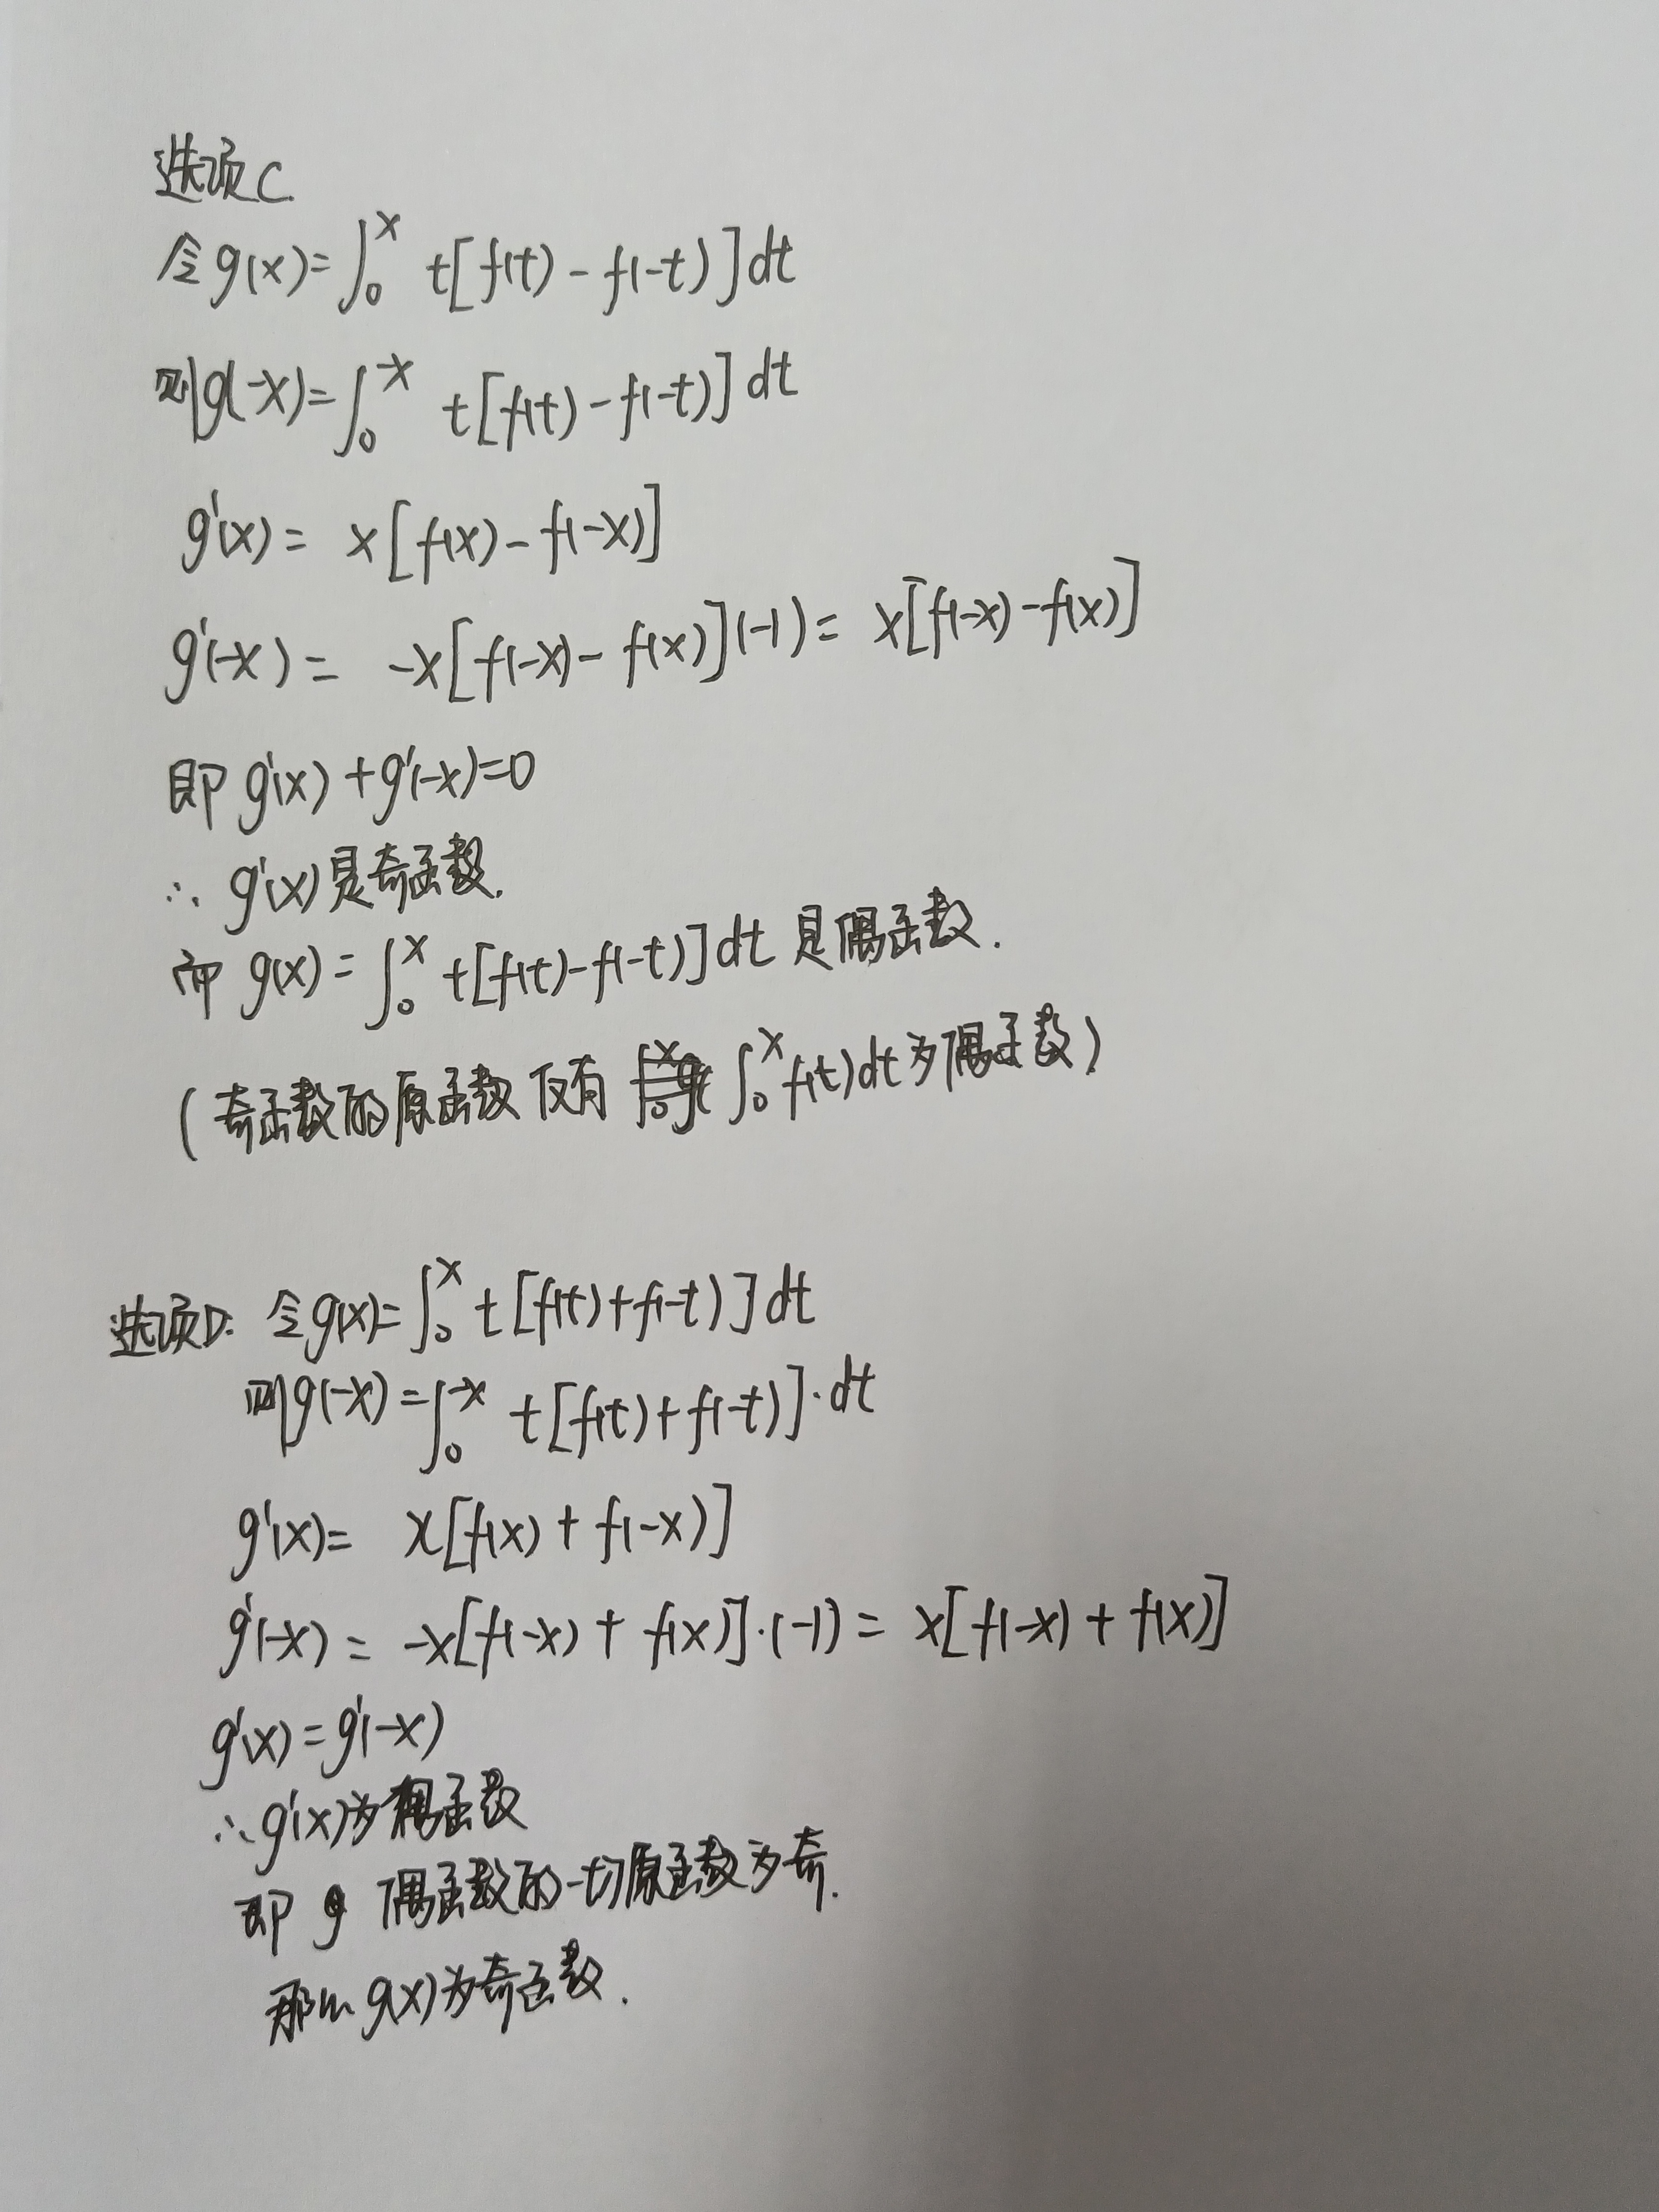 选项C.
令g(x)=∫₀ˣ t[f(t)-f(-t)]dt
则g(-x)=∫₀⁻ˣ t[f(t)-f(-t)]dt
g'(x)= x[f(x)-f(-x)]
g'(-x)= -x[f(-x)-f(x)](-1)= x[f(-x)-f(x)]
即 g'(x)+g'(-x)=0
∴ g'(x)是奇函数.
而 g(x)=∫₀ˣ t[f(t)-f(-t)]dt 是偶函数.
(奇函数的原函数仅有 ∫₀ˣ f(t)dt为偶函数)
选项D: 令g(x)=∫₀ˣ t[f(t)+f(-t)]dt
则g(-x)=∫₀⁻ˣ t[f(t)+f(-t)]·dt
g'(x)= x[f(x)+f(-x)]
g'(-x)= -x[f(-x)+f(x)]·(-1)= x[f(-x)+f(x)]
g'(x)=g'(-x)
∴g'(x)为偶函数
即 g 偶函数的一切原函数为奇.
那么g(x)为奇函数.